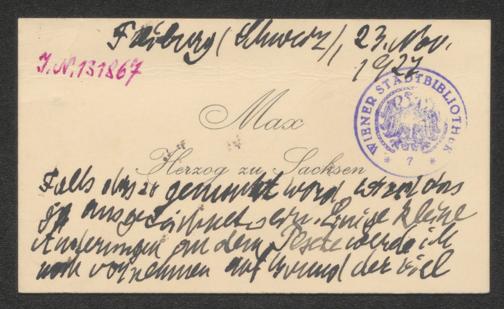 Freiburg (Schweiz), 23. Nov.
1927
J.N. 131867
WIENER STADTBIBLIOTHEK
* 7 *
Max
Herzog zu Sachsen
Falls das so gemacht wird, wird das
ja ausgezeichnet sein. Einige kleine
Änderungen an dem Texte werde ich
noch vornehmen auf Grund der viel